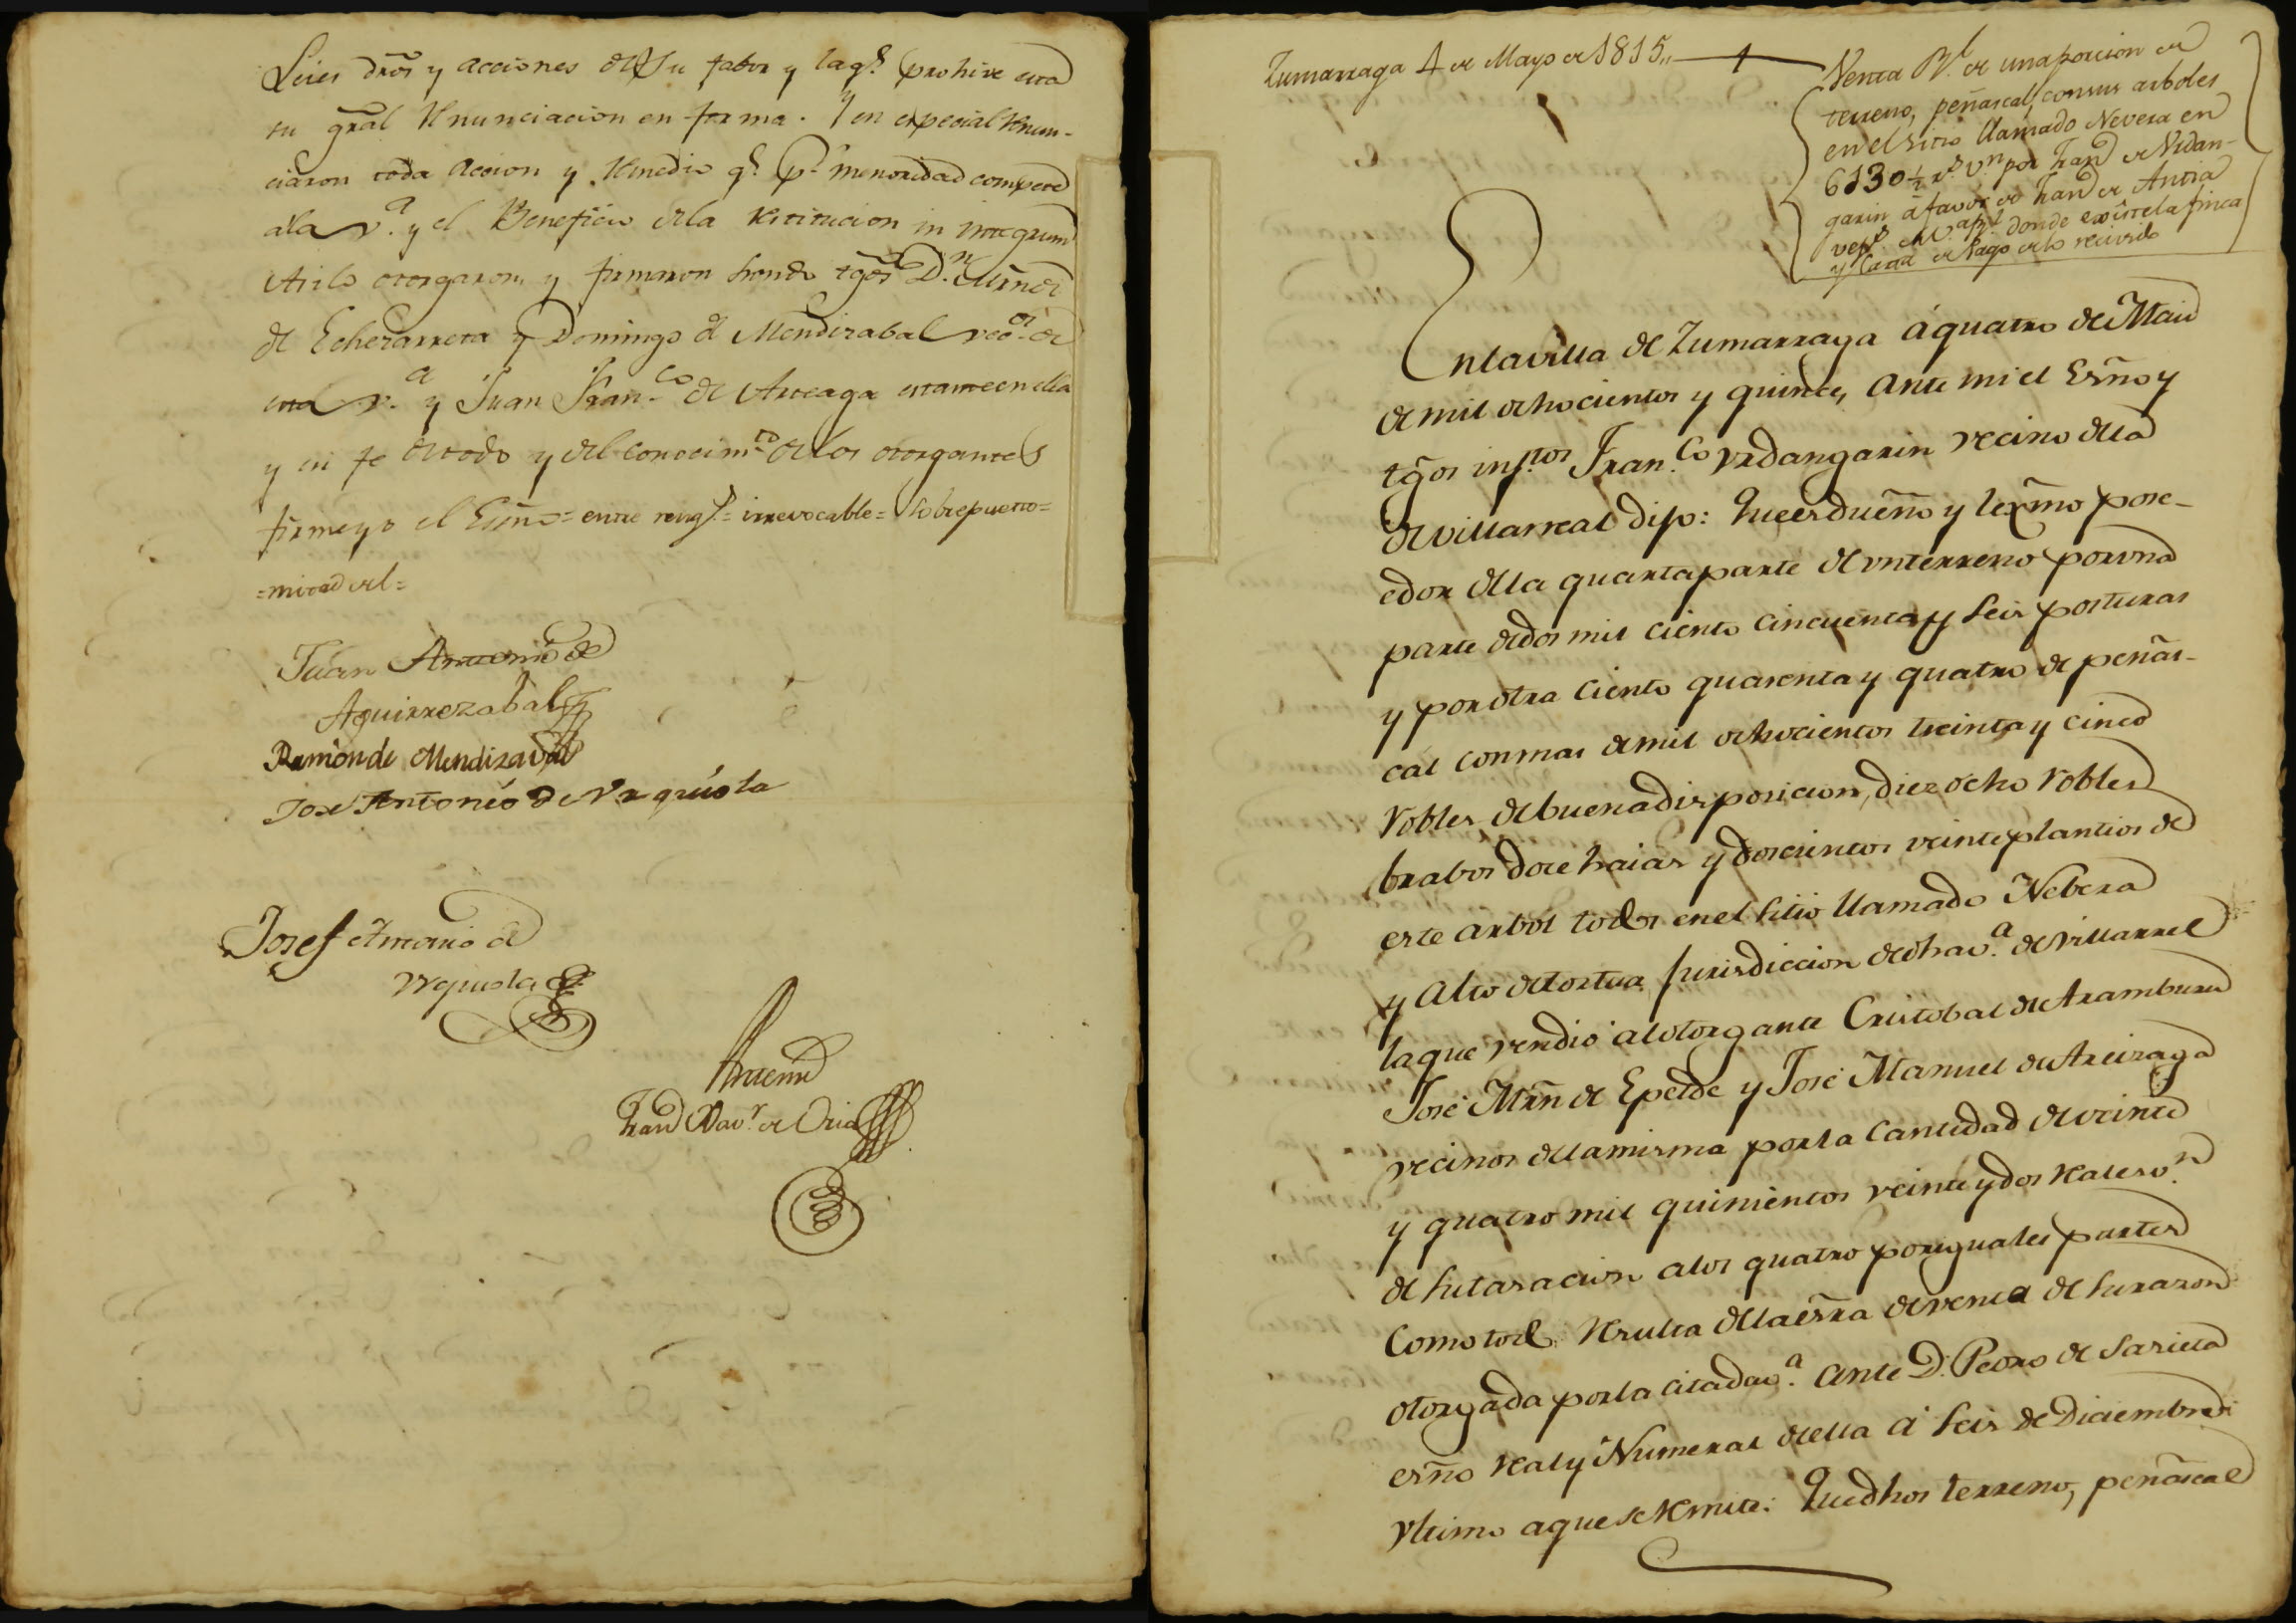 Leies dros y acciones de su fabor y la q.e prohive esta
su gral Renunciacion en forma. Y en especial Renun-
ciaron toda accion y Remedio q.e p.r menoridad compete
a la v.a y el Beneficio de la Restitucion in integrum
Asi lo otorgaron, y firmaron siendo tgos D.n Mrn de
de Echezarreta y Domingo de Mendizabal vecos de
esta v.a y Juan Fran.co de Arteaga estante en ella
y en fe de todo y del conocim.to de los otorgantes
firme yo el Esño = entre reng.s = irrevocable = Sobrepuesto =
= mitad del =
Juan Antonio de
Aguirrezabal
Ramon de Mendizaval
Jose Antonio de Urquiola
Josef Antonio de
Urquiola
Ante mi
Fran.co Xav.r de Oria
Zumarraga 4 de Mayo de 1815,,
Venta R.l de una porcion de
terreno, peñascal, con sus arboles
en el sitio llamado Nevera en
6130 ½ r.s v.n por Fran.co de Urdan-
garin á favor de Fran.co de Antia
donde existe la finca
y Carta de Pago de lo recivido
En la villa de Zumarraga á quatro de Maio
de mil ochocientos y quince, ante mi el Esño y
tgos inf.tos Fran.co Urdangarin vecino de la
de Villarreal dijo: Que es dueño y lexmo pose-
edor de la quarta parte de un terreno por una
parte de dos mil ciento cincuenta y seis posturas
y por otra ciento quarenta y quatro de peñas-
cal con mas de mil ochocientos treinta y cinco
robles de buena disposicion, diez ocho robles
brabos doce haias y doscientos veinte plantios de
este arbol todos en el sitio llamado Nebera
y Alto de tortua jurisdiccion de dha v.a de Villarreal
la que vendio al otorgante Cristobal de Aramburu
José Mrn de Epelde y José Manuel de Areizaga
vecinos de la misma por la cantidad de veinte
y quatro mil quinientos veinte y dos reales v.n
de su tasacion a los quatro por iguales partes
como todo Resulta de la esra de venta de su razon
otorgada por la citada v.a ante D. Pedro de Sarieta
esño Real y Numeral de ella á seis de Diciembre
ultimo a que se Remite: Que dhos terreno, peñascal